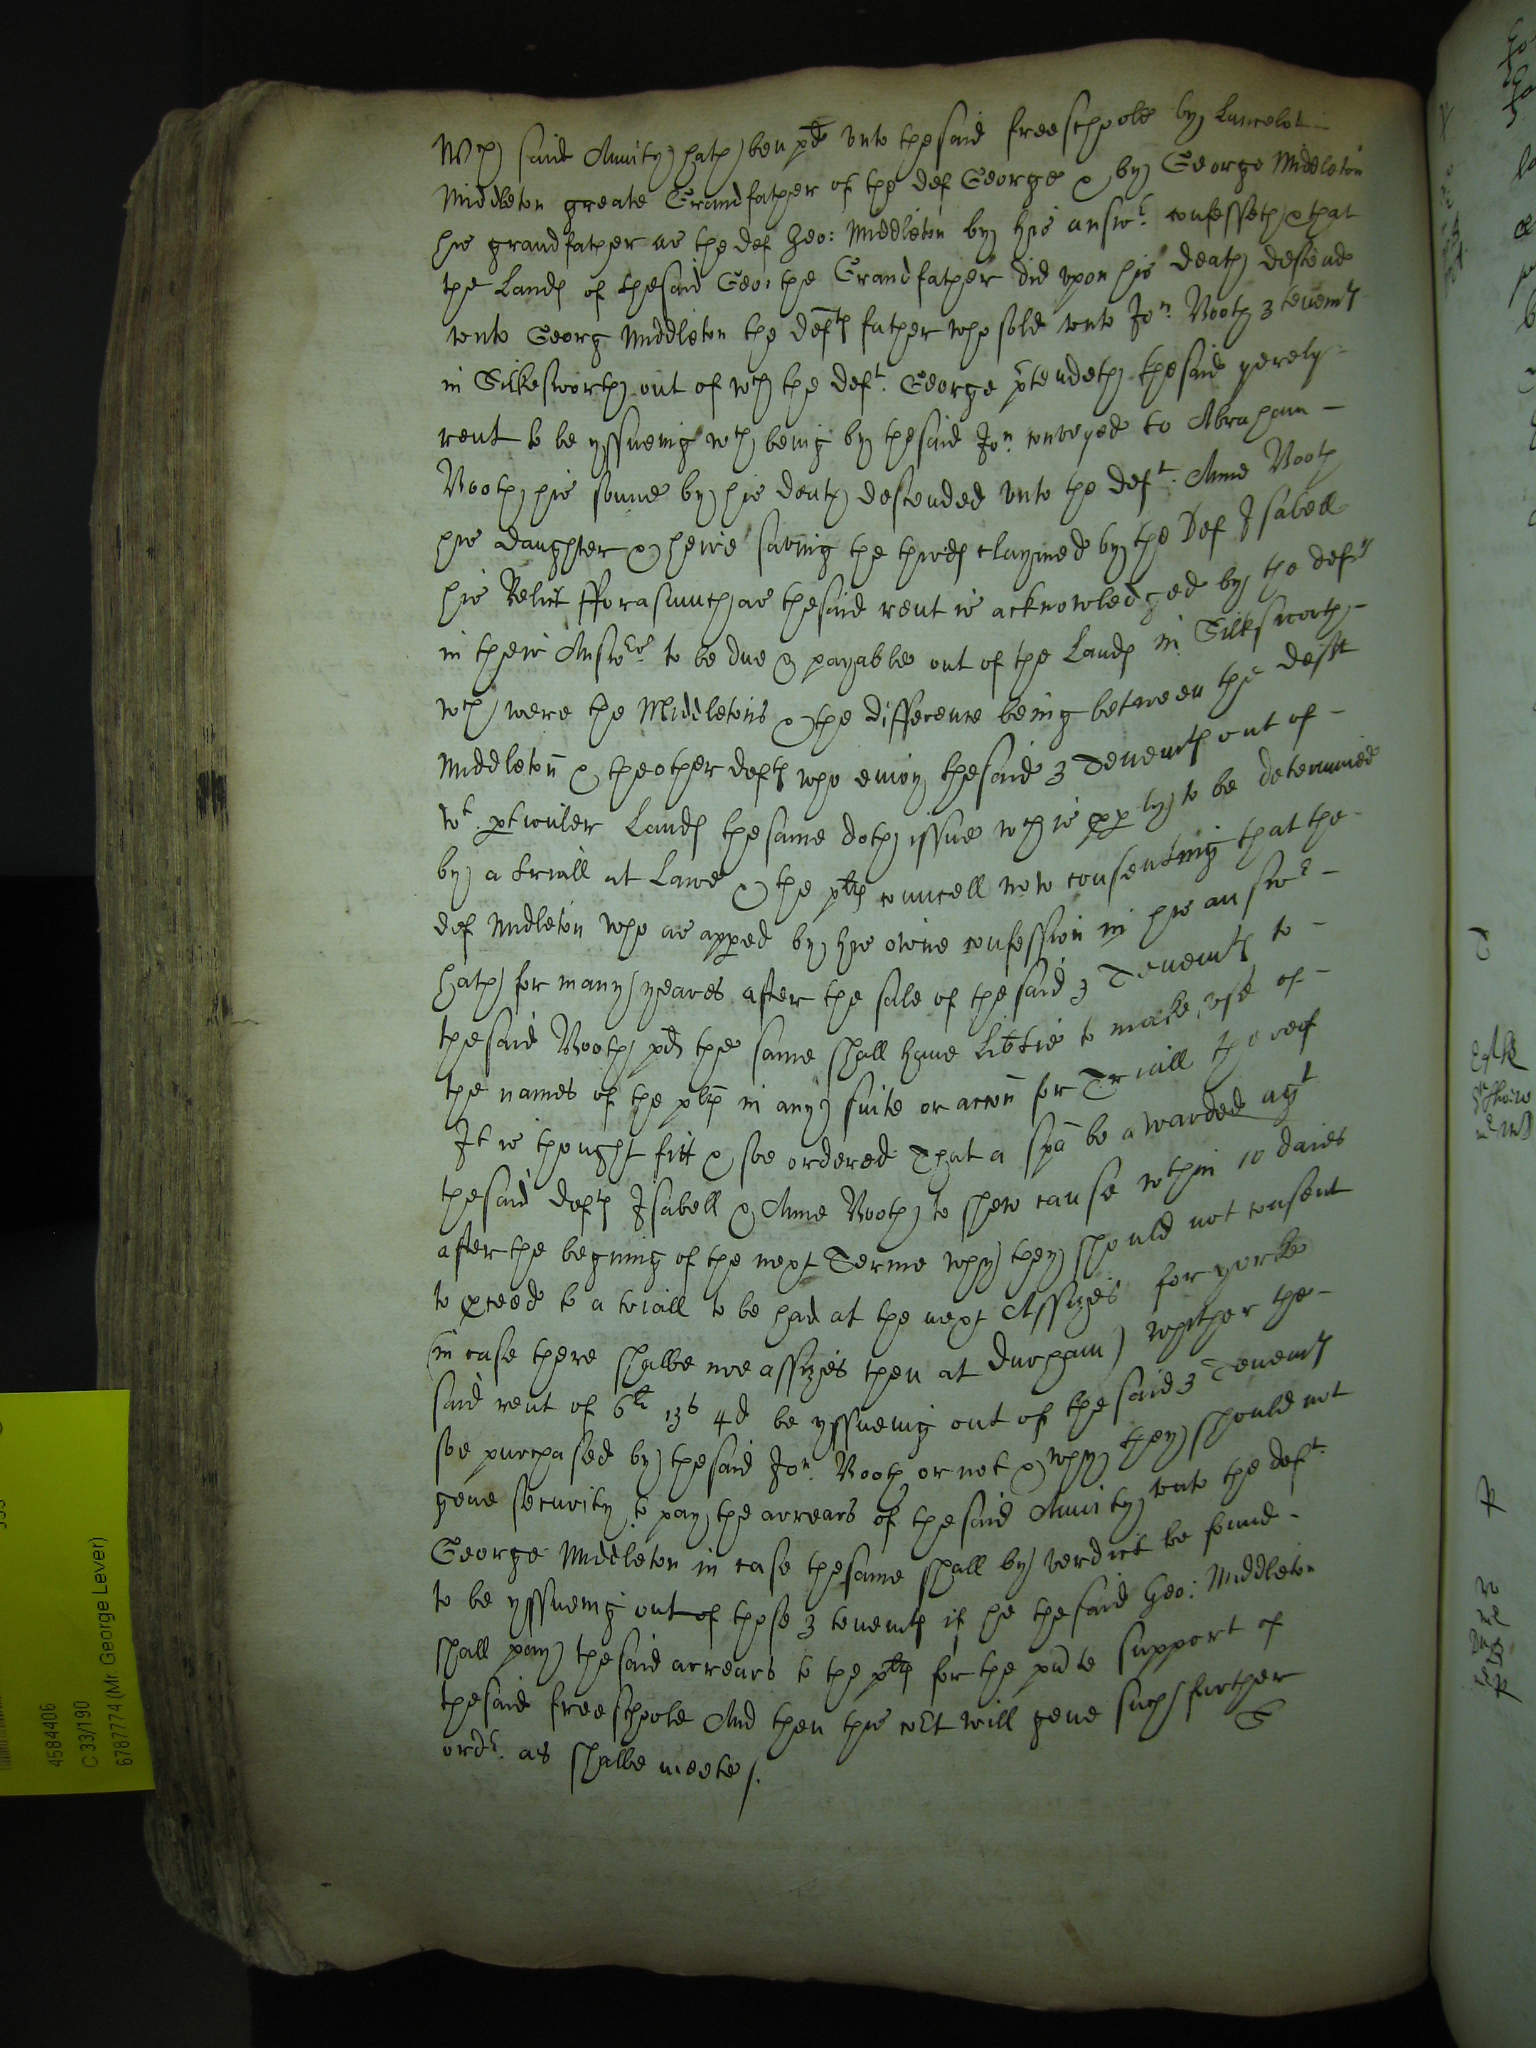 Wch said Anuity hath ben pd unto the said free schoole by Lancelot
Middleton greate Grandfather of the def George & by George Middleton
his grandfather as the def Geo: Middleton by his answr confesseth & that
the Lands of the said Geo: the Grandfather did upon his death descend
unto Georg Middleton the defts father who sold unto Jon. Booth 3 tenemts
in Silkesworth out of wch the deft. George ptendeth the said yerely
rent to be yssueing wch being by the said Jon. conveyed to Abraham
Booth his sonne by his death descended unto the deft. Anne Booth
his daughter & heire saving the thirds claymed by the Def Isabell
his Relict fforasmuch as the said rent is acknowledged by the defts
in their Answrs to be due & payable out of the Lands in Silksworth
wch were the Middletons & the difference being between the deft
Middleton & the other defts who enioy the said 3 Tenemts out of
wt pticuler Lands the same doth issue wch is pply to be determined
by a triall at Lawe & the plts councell now consenting that the
def Midleton who as apped by his owne confession in his answr
hath for many yeares after the sale of the said 3 Tenemts to
the said Booth pd the same shall have libtie to make use of
the names of the plts in any suite or accon for Triall thereof
It is thought fitt & soe ordered That a spa be awarded agt
the said defts Isabell & Anne Booth to shew cause wthin 10 daies
after the begning of the next Terme why they should not consent
to pceed to a triall to be had at the next Assizes for yorke
(in case there shalbe noe assizes then at Durham) whether the
said rent of 6li 13s 4d be yssueing out of the said 3 Tenemts
soe purchased by the said Jon. Booth or not & why they should not
geve security to pay the arrears of the said Anuity unto the deft.
George Middleton in case the same shall by verdict be found
to be yssueing out of those 3 tenemts if he the said Geo: Middleton
shall pay the said arrears to the plts for the support of
the said free schoole And then this cort will geve such further
ordr. as shalbe meete
4584406
C 33/190
6787774 (Mr. George Lever)